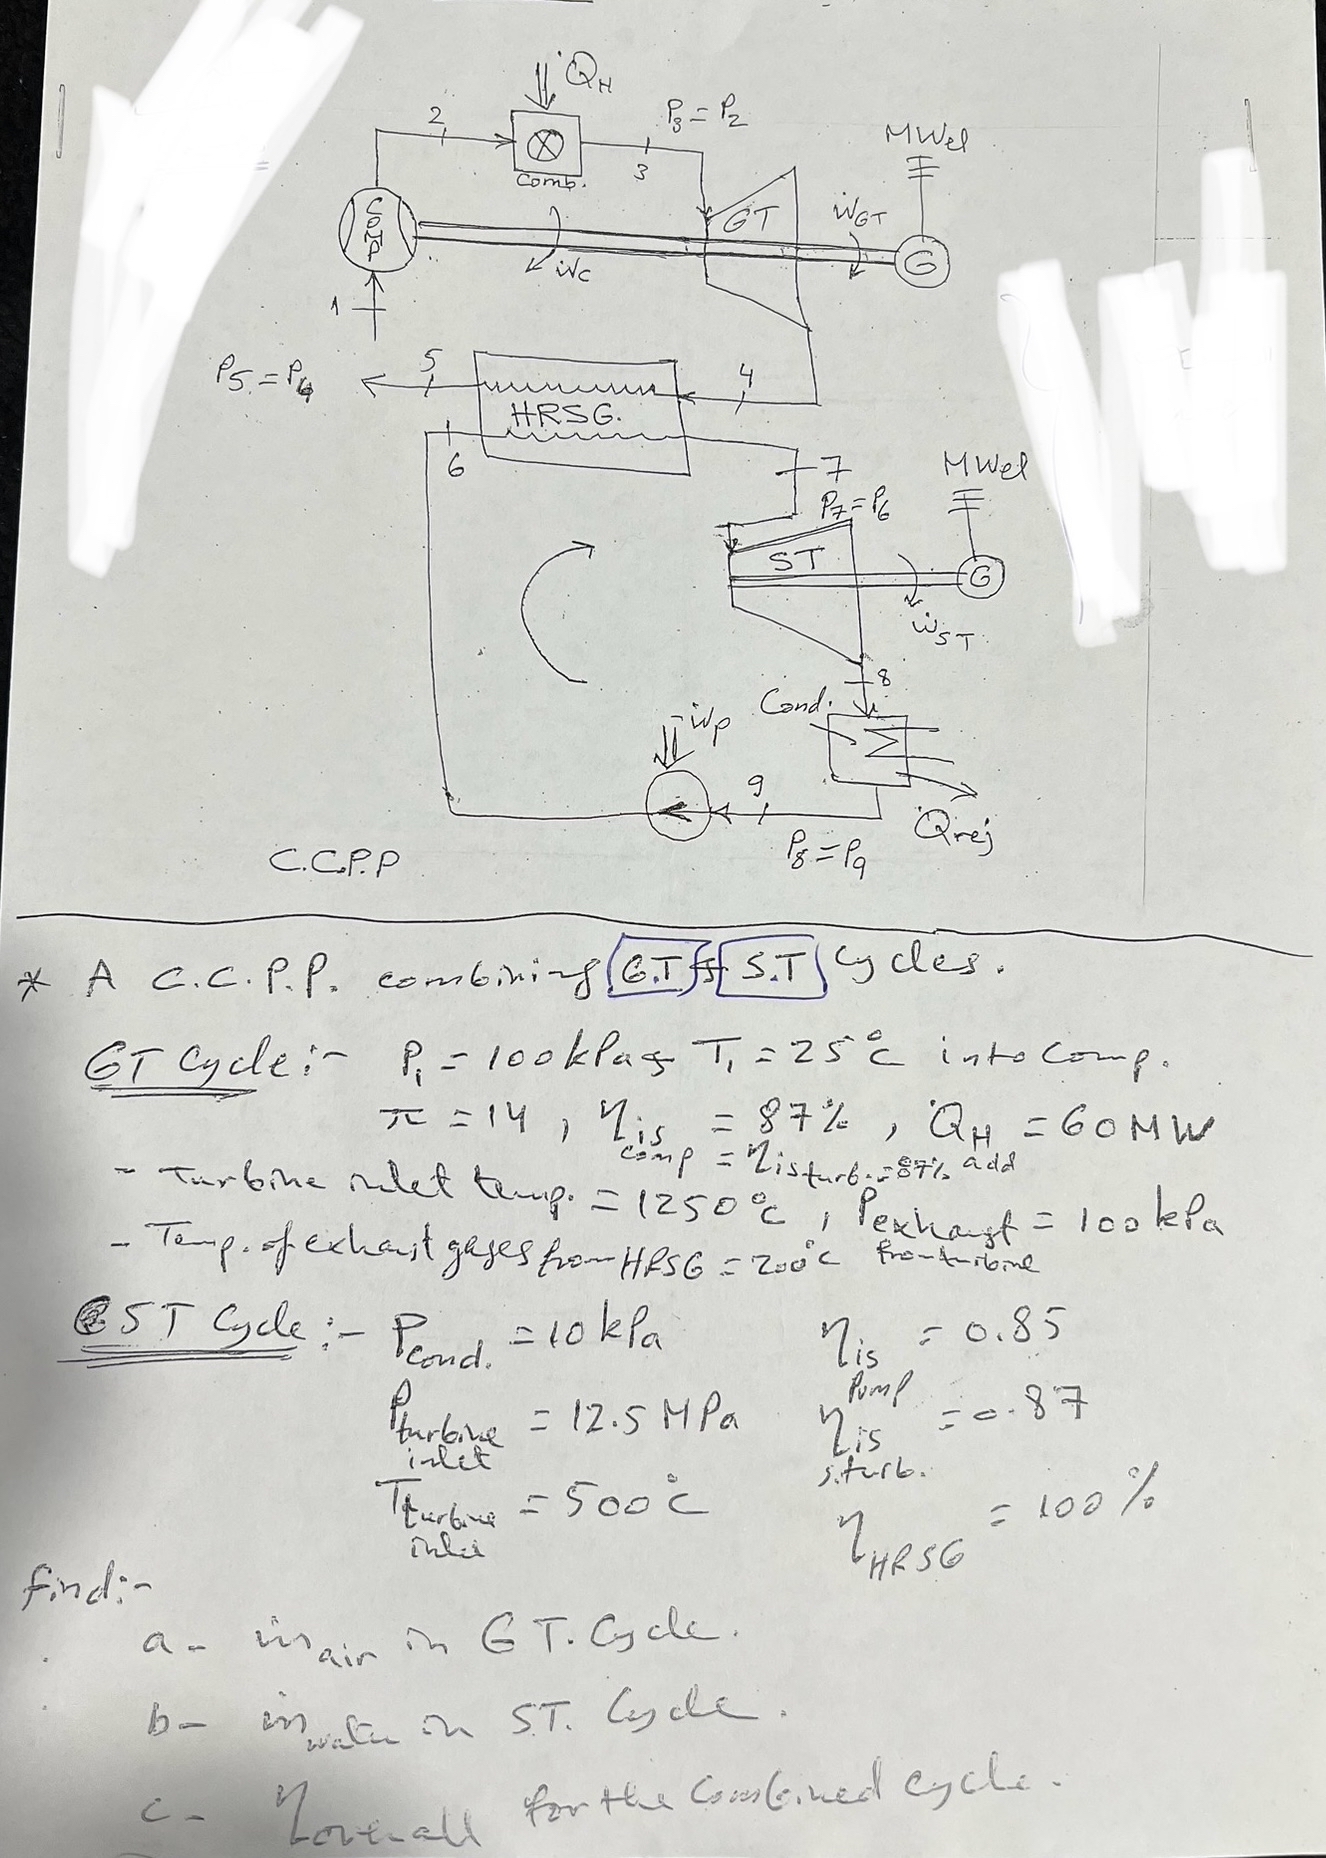 Q̇H
P3 = P2
MWel
2
3
Comb.
COMP
GT
ẆGT
G
ẆC
1
P5 = P4
5
4
HRSG.
6
7
MWel
P7 = P6
ST
G
ẆST
8
Cond.
-Ẇp
9
Q̇rej
P8 = P9
C.C.P.P
* A C.C.P.P. combining G.T & S.T Cycles.
GT Cycle:- P1 = 100 kPa & T1 = 25°C into Comp.
π = 14, ηis comp = 87%, Q̇H add = 60 MW
= ηis turb. = 87%
- Turbine inlet temp. = 1250°C, Pexhaust from turbine = 100 kPa
- Temp. of exhaust gases from HRSG = 200°C
ST Cycle:- Pcond. = 10 kPa ηis pump = 0.85
Pturbine inlet = 12.5 MPa ηis s.turb. = 0.87
Tturbine inlet = 500°C ηHRSG = 100%
find:-
a- ṁair in GT. Cycle.
b- ṁwater in ST. Cycle.
c- ηoverall for the Combined cycle.